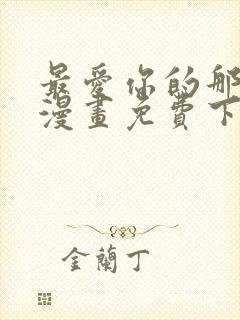 最愛你的那
漫畫免費下
金蘭丁